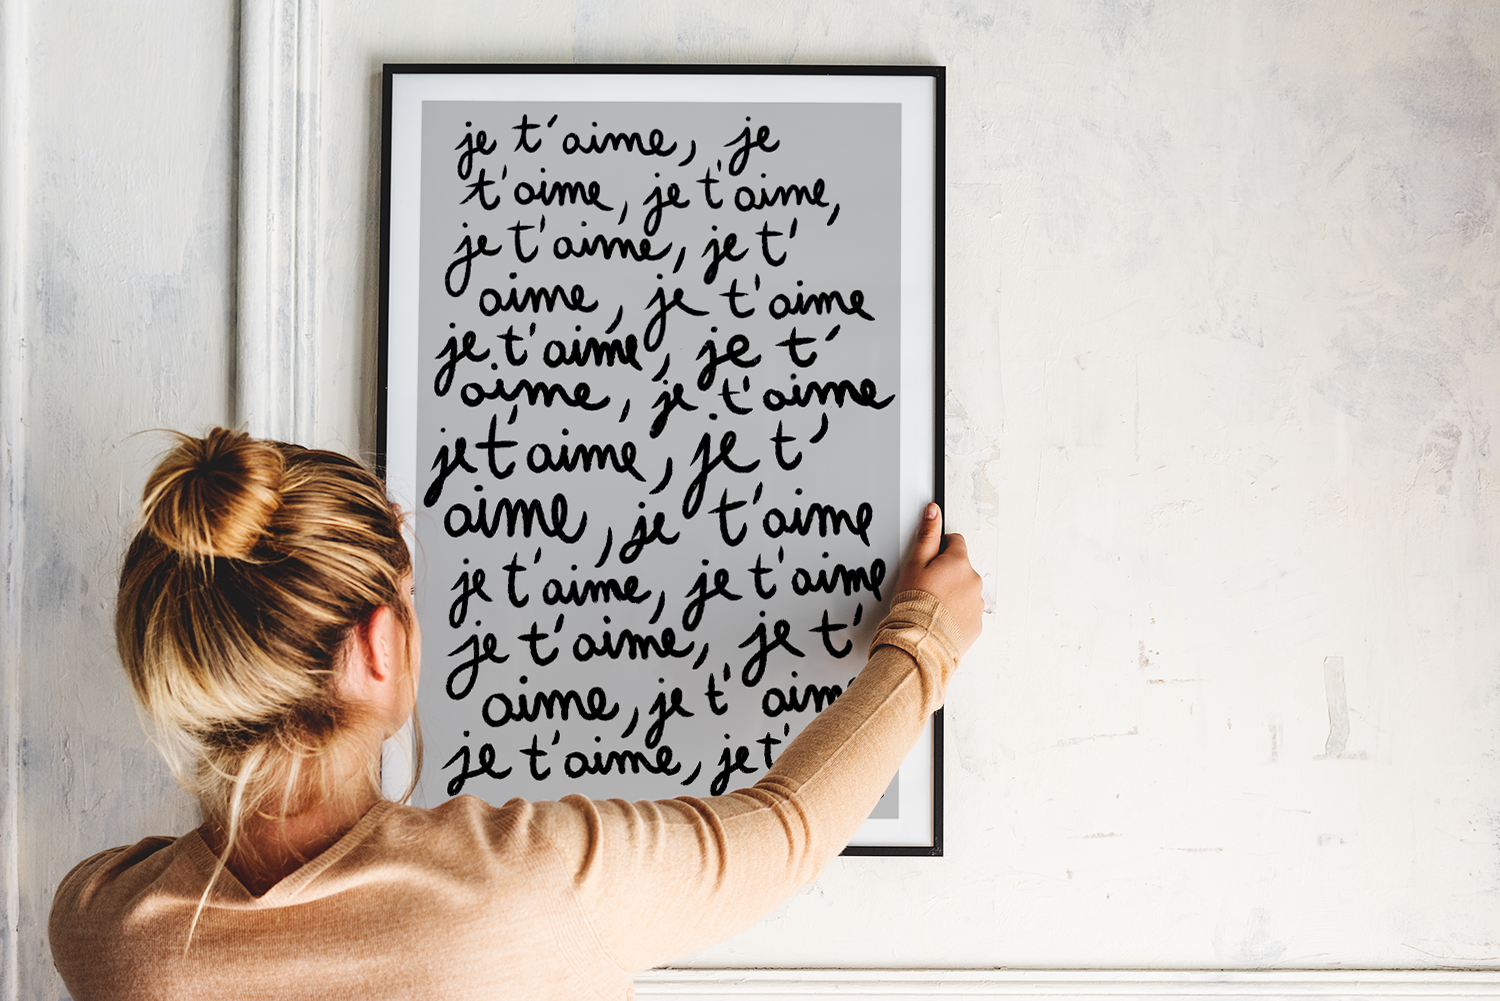 je t'aime, je
t'aime, je t'aime,
je t'aime, je t'
aime, je t'aime
je t'aime, je t'
aime, je t'aime
je t'aime, je t'
aime, je t'aime
je t'aime, je t'aime
je t'aime, je t'
aime, je t'
je t'aime, je t'